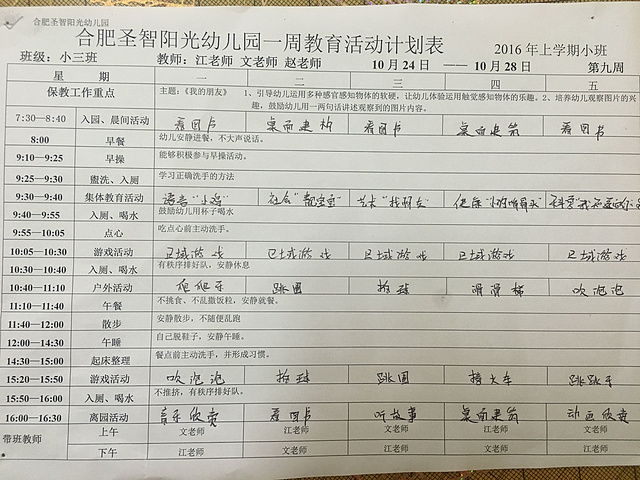 合肥圣智阳光幼儿园
合肥圣智阳光幼儿园一周教育活动计划表 2016年上学期小班
班级：小三班 教师：江老师 文老师 赵老师 10月24日 ——10月28日 第九周
星 期 一 二 三 四 五
保教工作重点 主题：《我的朋友》 1、引导幼儿运用多种感官感知物体的软硬，让幼儿体验运用触觉感知物体的乐趣。2、培养幼儿观察图片的兴
趣，鼓励幼儿用一两句话讲述观察到的图片内容。
7:30—8:40 入园、晨间活动 看图书 桌面建构 看图书 桌面建筑 看图书
8:00 早餐 幼儿安静进餐，不大声说话。
9:10—9:25 早操 能够积极参与早操活动。
9:25—9:30 盥洗、入厕 学习正确洗手的方法
9:30—9:40 集体教育活动 语言"小鸡" 社会 艺术"找朋友" 健康
9:40—9:55 入厕、喝水 鼓励幼儿用杯子喝水
9:55—10:05 点心 吃点心前主动洗手。
10:05—10:30 游戏活动 区域游戏 区域游戏 区域游戏 区域游戏 区域游戏
10:30—10:40 入厕、喝水 有秩序排好队，安静休息
10:40—11:10 户外活动 爬爬乐 跳圈 拍球 滑滑梯 吹泡泡
11:10—11:40 午餐 不挑食、不乱撒饭粒，安静就餐。
11:40—12:00 散步 安静散步，不随便乱跑
12:00—14:30 午睡 自己脱鞋子，安静午睡。
14:30—15:00 起床整理 餐点前主动洗手，并形成习惯。
15:20—15:50 游戏活动 吹泡泡 拍球 跳圈 接火车 跳跳乐
15:50—16:00 入厕、喝水 不推挤，有秩序排好队。
16:00—16:30 离园活动 音乐欣赏 看图书 听故事 桌面建筑 动画欣赏
带班教师 上午 文老师 江老师 文老师 江老师 文老师
下午 江老师 文老师 江老师 文老师 江老师